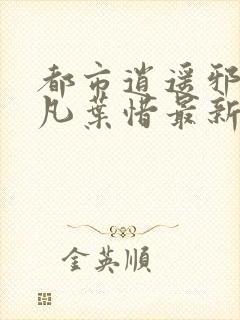 都市逍遥邪
凡葉惜最新
金英順